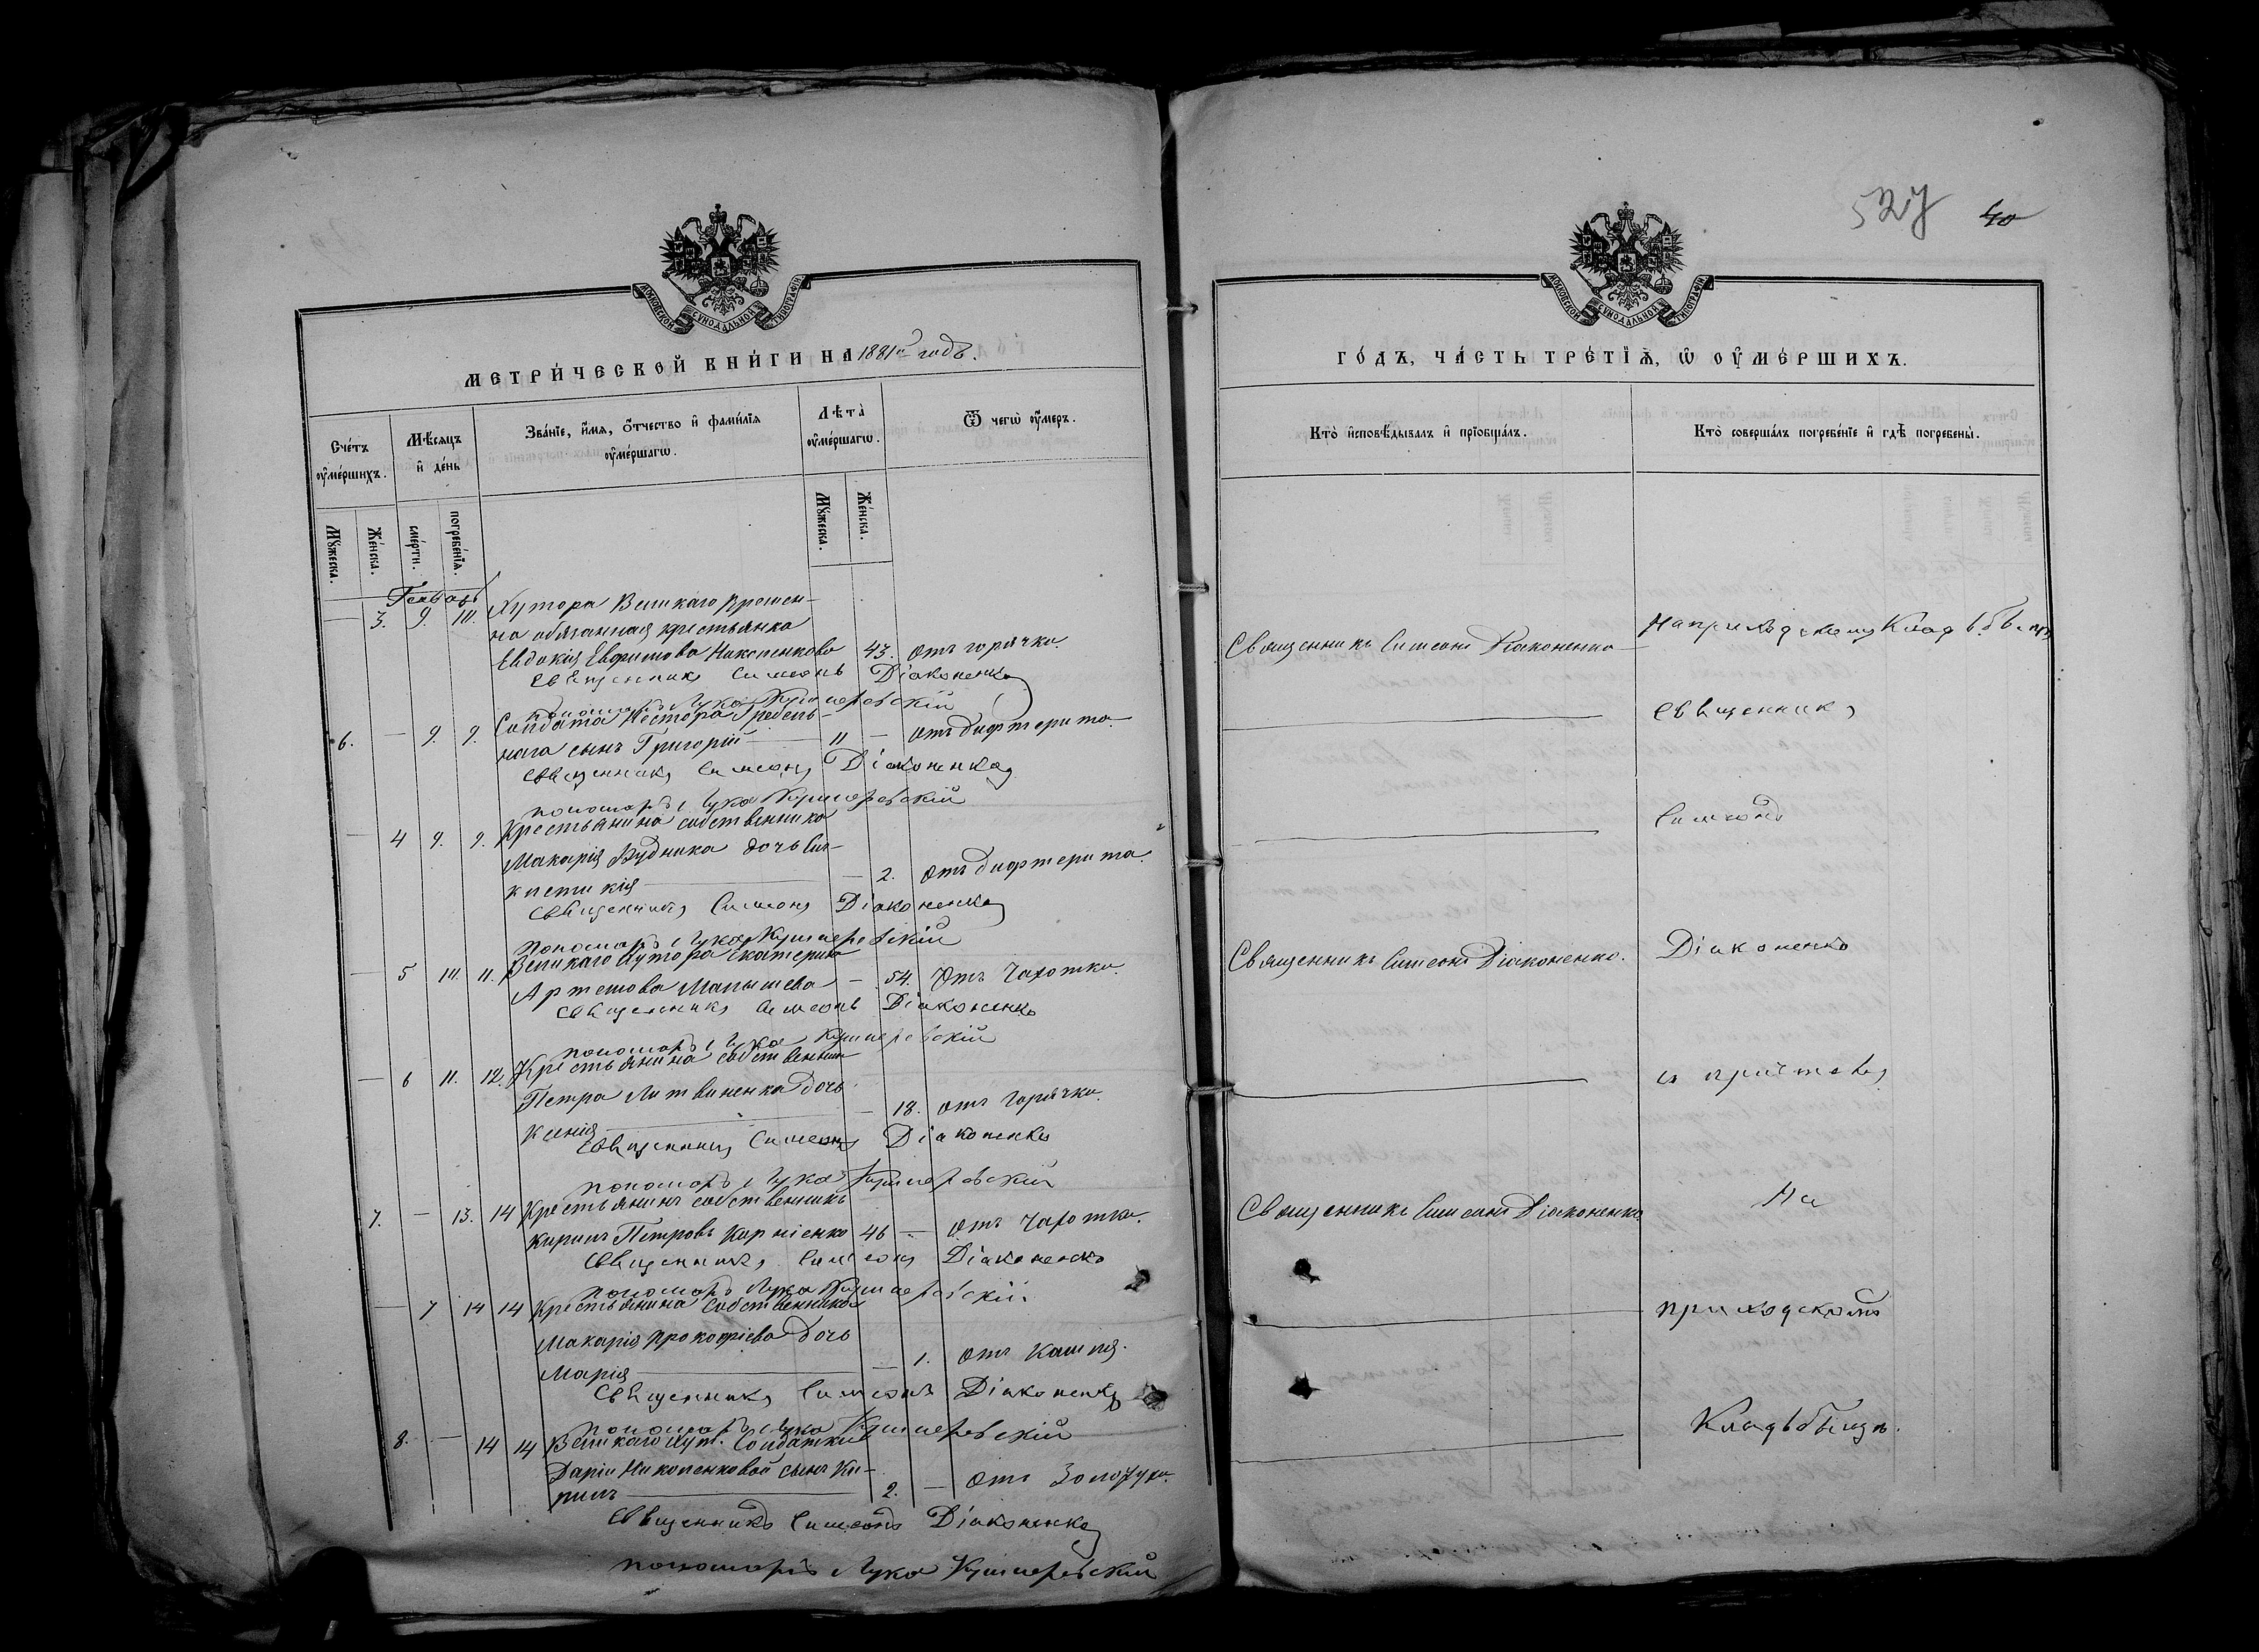 527 40
МОСКОВСКОЙ СѴНОДАЛЬНОЙ ТИПОГРАФІИ
МЕТРИ́ЧЕСКОЙ КНИ́ГИ НА 1881й годъ.
Сче́тъ ᲂу҆ме́ршихъ.
Мѣ́сяцъ и҆ де́нь
Зва́нїе, и҆́мя, ѻ҆́тчество и҆ фами́лїя ᲂу҆ме́ршагѡ.
Лѣта̀ ᲂу҆ме́ршагѡ.
Ѿ чегѡ̀ ᲂу҆́меръ.
Мꙋ́жеска.
Же́нска.
сме́рти.
погребе́нїѧ.
Мꙋ́жеска.
Же́нска.
Генварь
— 3. 9. 10. Хутора Великаго Времен-
но обязанная крестьянка
Евдокія Ефимова Николенкова 43. отъ горячки.
Священникъ Симеонъ Діаконенко
пономарь Лука
6. — 9. 9. Солдата Нестора Гребень-
наго сынъ Григорій — 11 — отъ дифтерита.
Священникъ Симеонъ Діаконенко
пономарь Лука
— 4 9. 9. Крестьянина собственника
Макарія Будника дочь Син-
клетикія — — 2. отъ дифтерита.
Священникъ Симеонъ Діаконенко
пономарь Лука
— 5 10. 11. Великаго Хутора Екатерина
Артемова Малышева — 54. отъ Чахотки.
Священникъ Симеонъ Діаконенко
пономарь Лука
— 6 11. 12. Крестьянина собственника
Петра Литвиненка дочь
Ксенія — — 18. отъ Горячки.
Священникъ Симеонъ Діаконенко
пономарь Лука
7. — 13. 14 Крестьянинъ собственникъ
Кирилъ Петровъ Карпіенко 46 — отъ Чахотки.
Священникъ Симеонъ Діаконенко
пономарь Лука
— 7 14 14 Крестьянина собственника
Макарія Прокофіева дочь
Марія — — 1. отъ Кашля.
Священникъ Симеонъ Діаконенко
пономарь Лука
8. — 14 14 Великаго Хут. Солдатки
Даріи Николенковой сынъ Ки-
рилъ — 2. — отъ Золотухи.
Священникъ Симеонъ Діаконенко
пономарь Лука
МОСКОВСКОЙ СѴНОДАЛЬНОЙ ТИПОГРАФІИ
ГО́ДЪ, ЧА́СТЬ ТРЕ́ТЇѦ, Ѡ҆ ОУ҆МЕ́РШИХЪ.
Кто̀ и҆сповѣ́дывалъ и҆ прїѡбща́лъ.
Кто̀ соверша́лъ погребе́нїе и҆ гдѣ̀ погребены̀.
Священникъ Симеонъ Діаконенко —
Священникъ
Симеонъ
Священникъ Симеонъ Діаконенко.
Діаконенко
съ причтомъ
Священникъ Симеонъ Діаконенко
На
приходскомъ
Кладбищѣ.